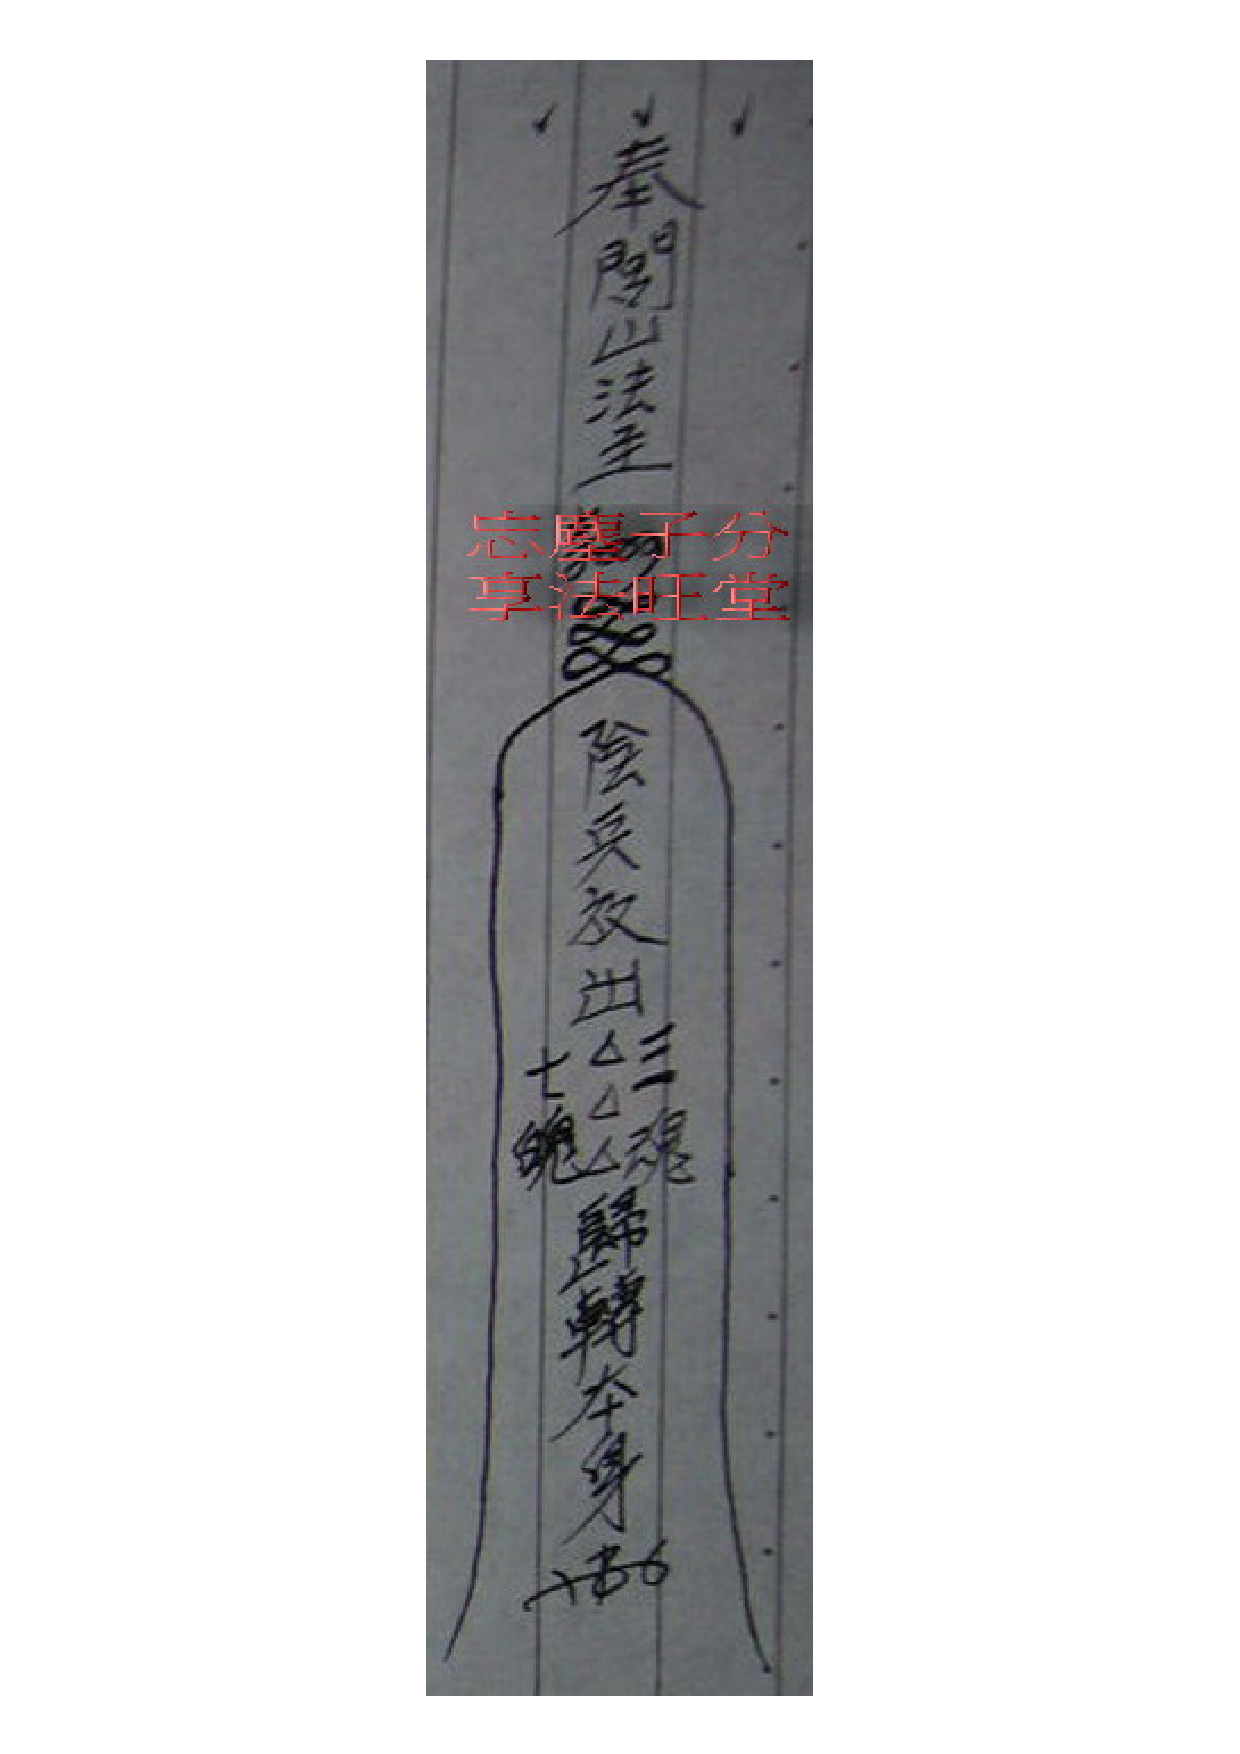 奉閭山法主
忘塵子分
享法旺堂
陰兵放出
三魂
七魄
歸轉本身